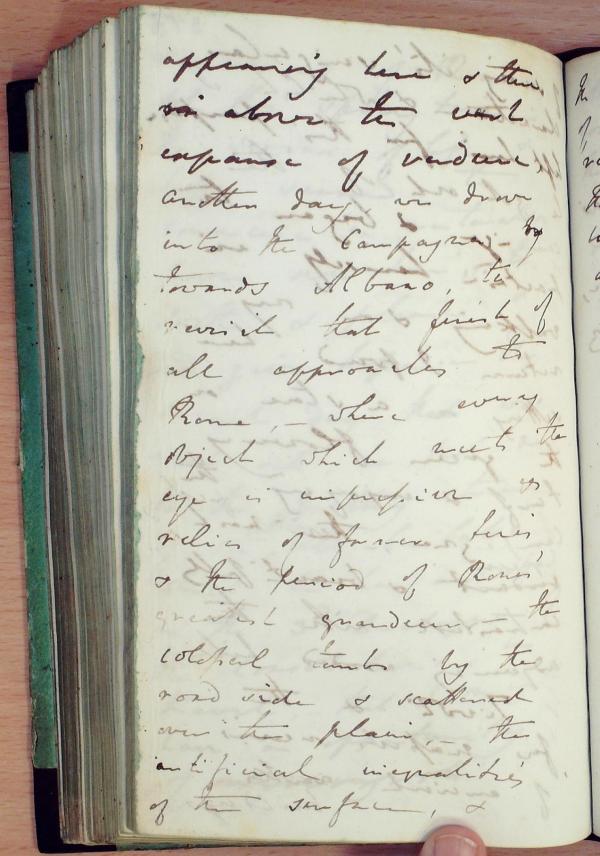 appearing here & there
above the vast
expanse of verdure,
another day, we drove
into the Campagna, by
towards Albano, to
revisit that finest of
all approaches to
Rome, — where every
object which meets the
eye is impressive as
relics of former times,
& the period of Romes
greatest grandeur — the
colossal tombs by the
road side & scattered
over the plain, — the
artificial inequalities
of the surface, &
the
of